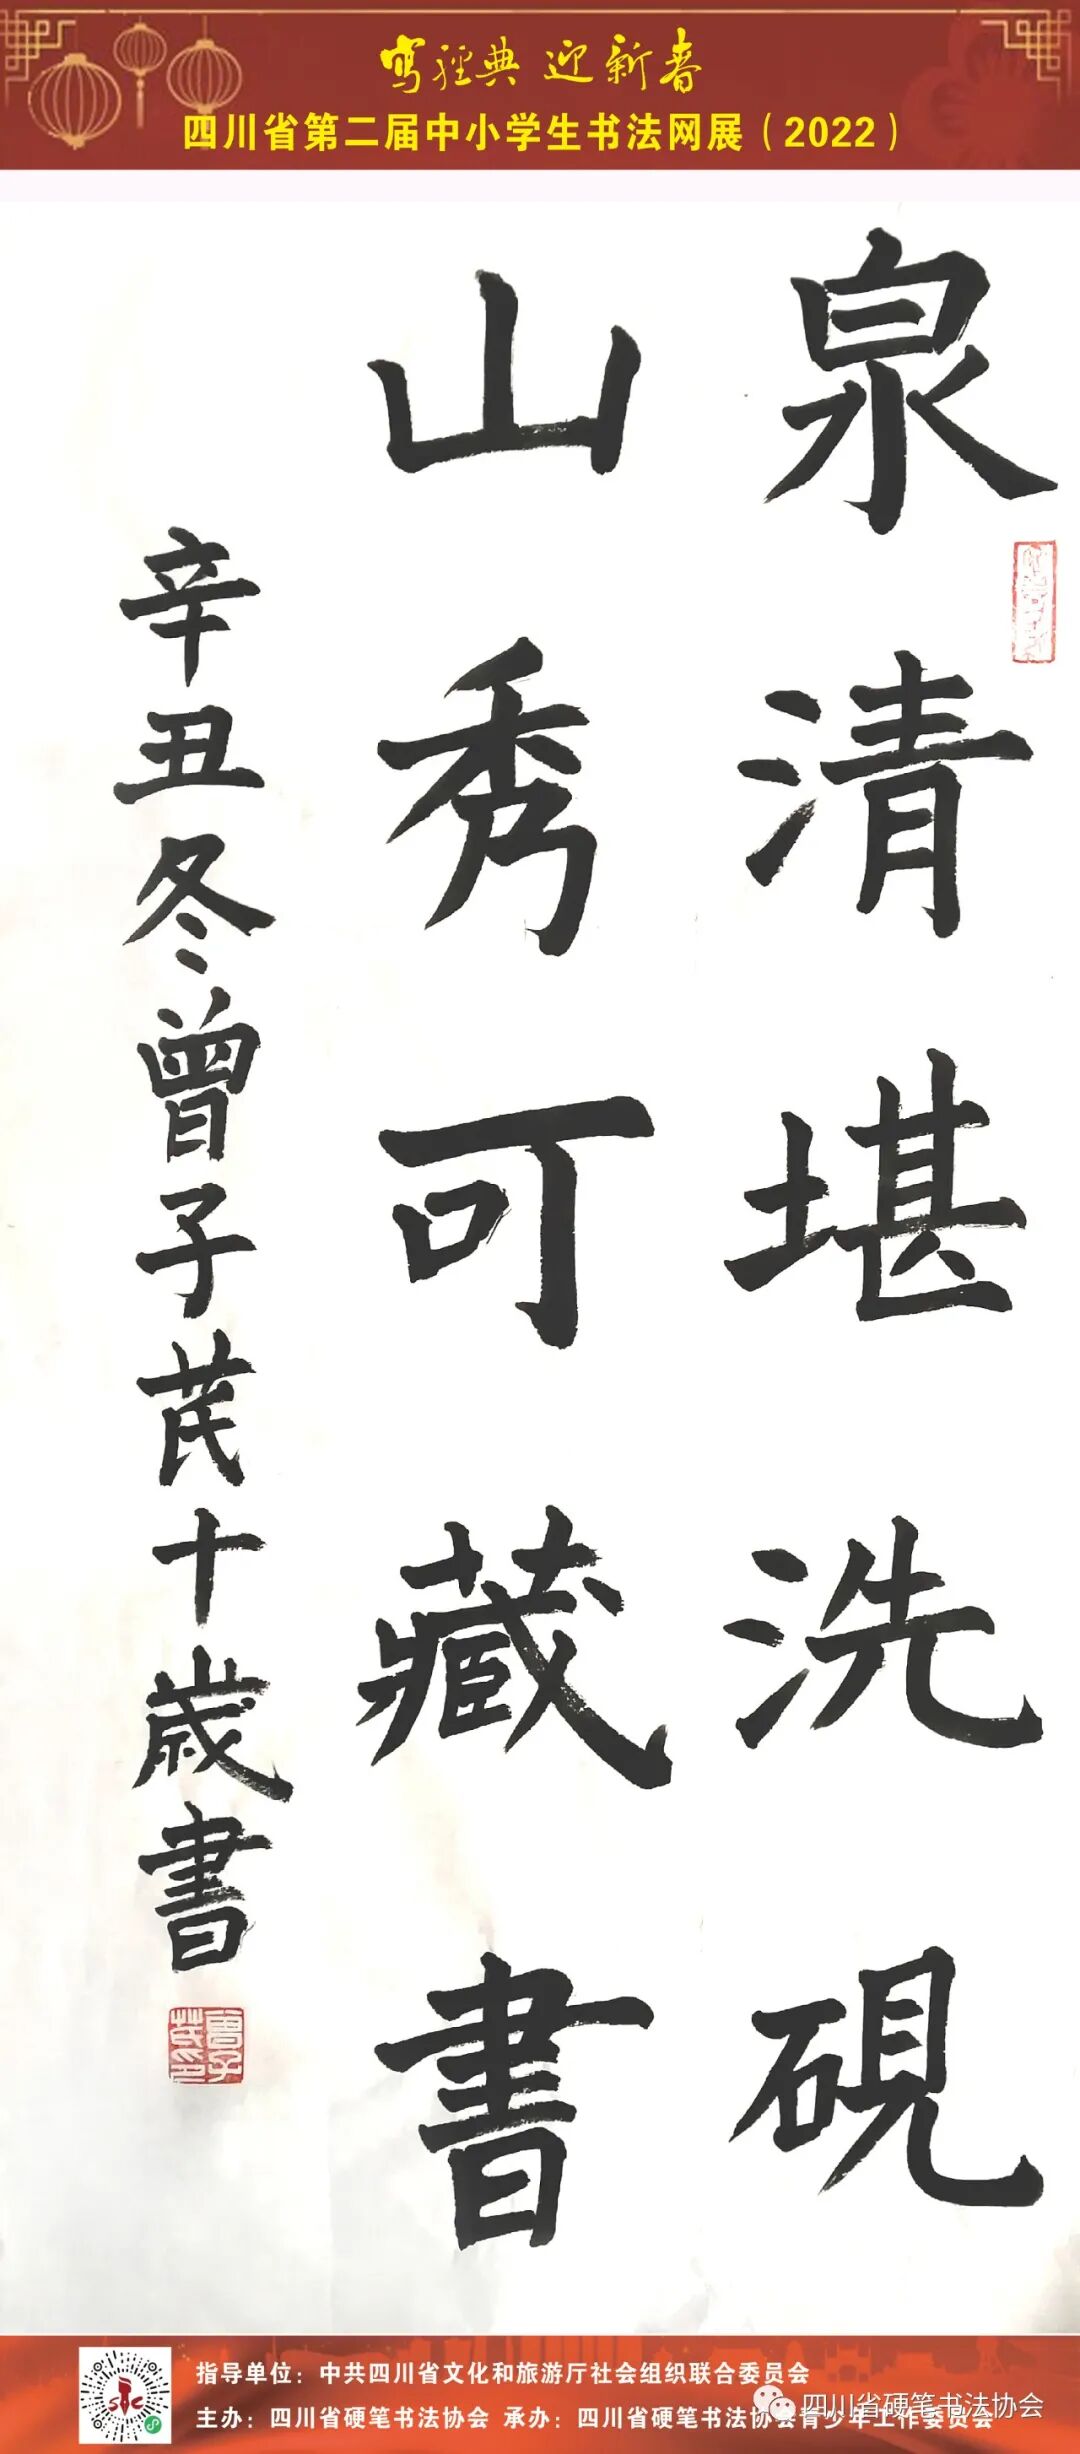 寫經典 迎新春
四川省第二届中小学生书法网展（2022）
泉清堪洗硯
山秀可藏書
辛丑冬曾子芪十歲書
曾子芪印
指导单位：中共四川省文化和旅游厅社会组织联合委员会
主办：四川省硬笔书法协会 承办：四川省硬笔书法协会青少年工作委员会
四川省硬笔书法协会